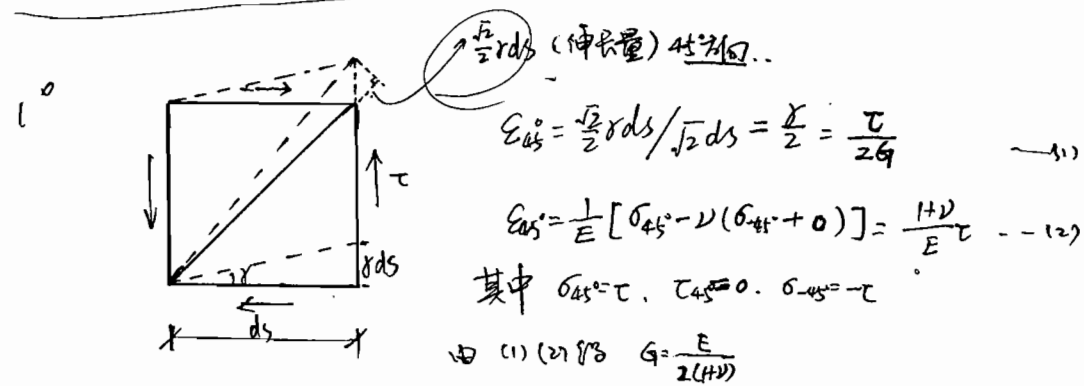 √2/2 γds (伸长量) 45°方向..
1°
ε45° = √2/2 γds / √2 ds = γ/2 = τ/2G —(1)
τ
ε45° = 1/E [σ45° - ν(σ-45° + 0)] = 1+ν/E τ --(2)
γ
γds
其中 σ45°=τ. τ45°=0. σ-45°=-τ
ds
由 (1) (2) 得 G = E/2(1+ν)